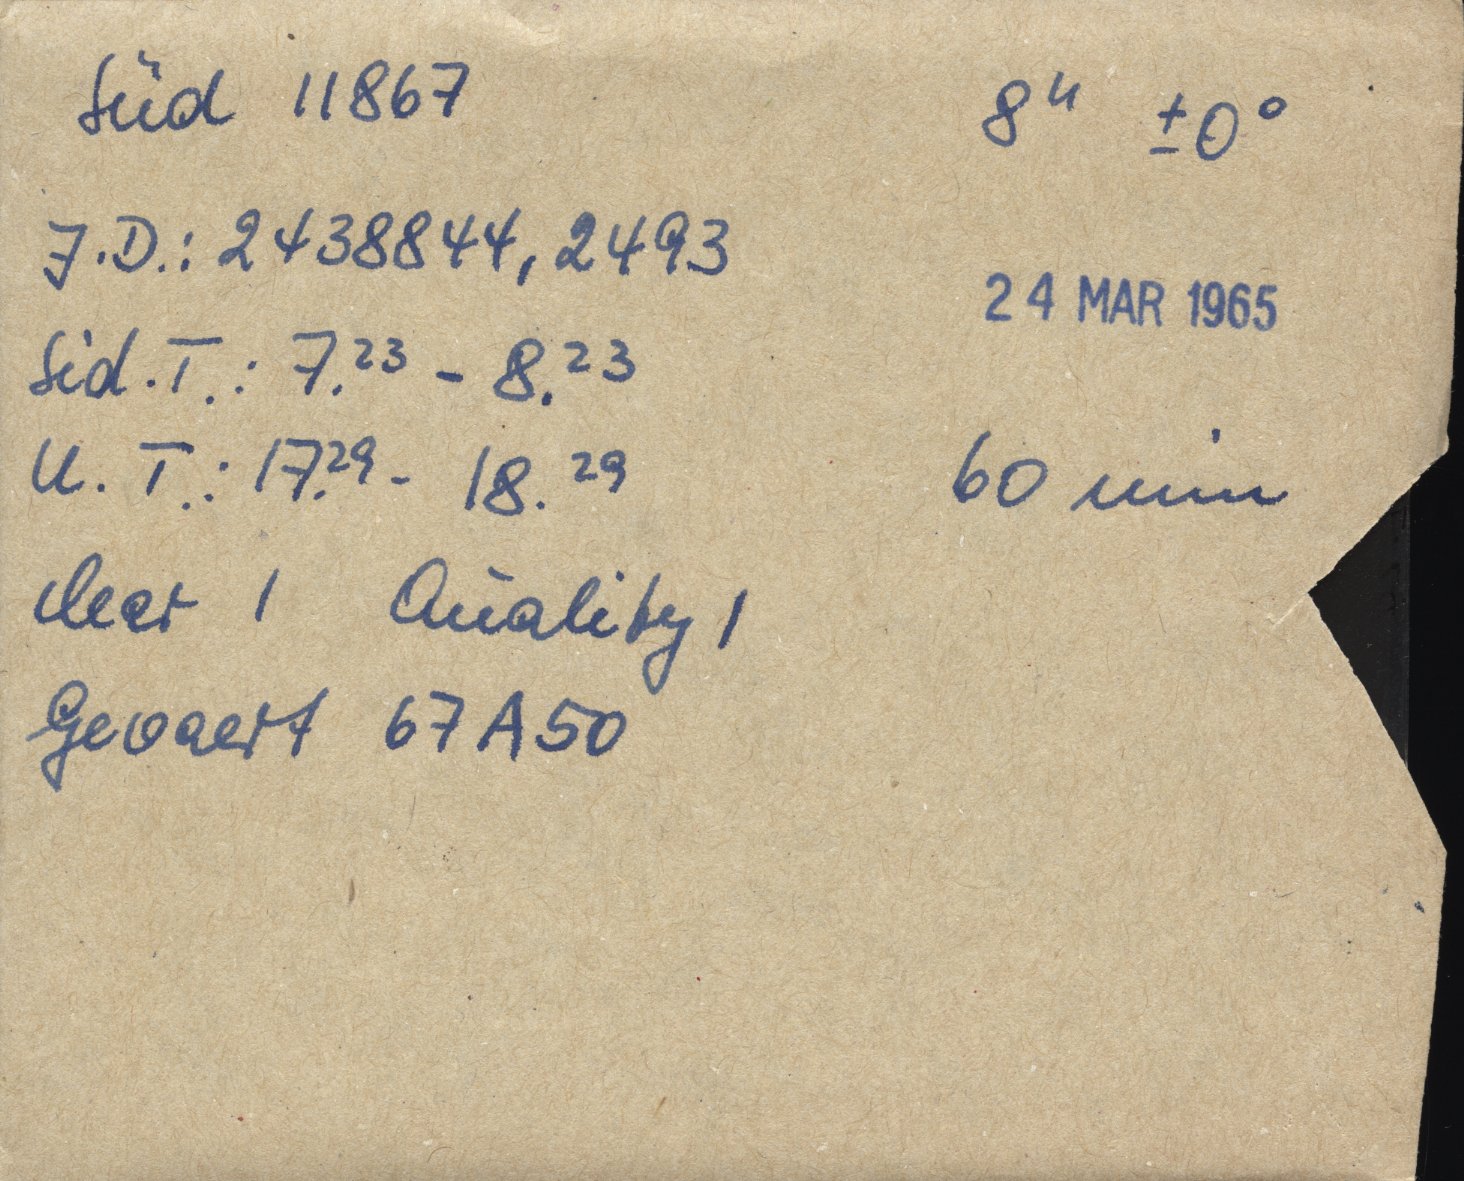 Süd 11867 8h ±0°
J.D.: 2438844,2493
24 MAR 1965
Sid.T.: 7.23 - 8.23
U.T.: 17.29 - 18.29 60 min
clear 1 Quality 1
Gevaert 67A50